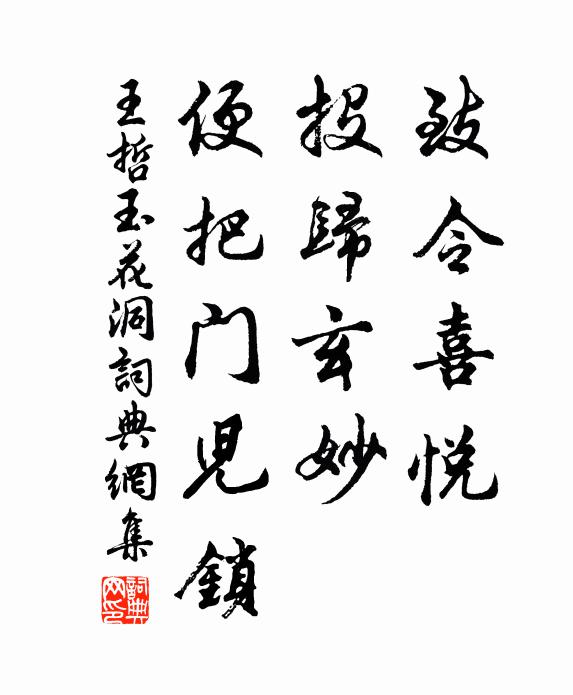 致令喜悦
投歸玄妙
便把门児鎖
王哲玉花洞詞典網集
詞典网印